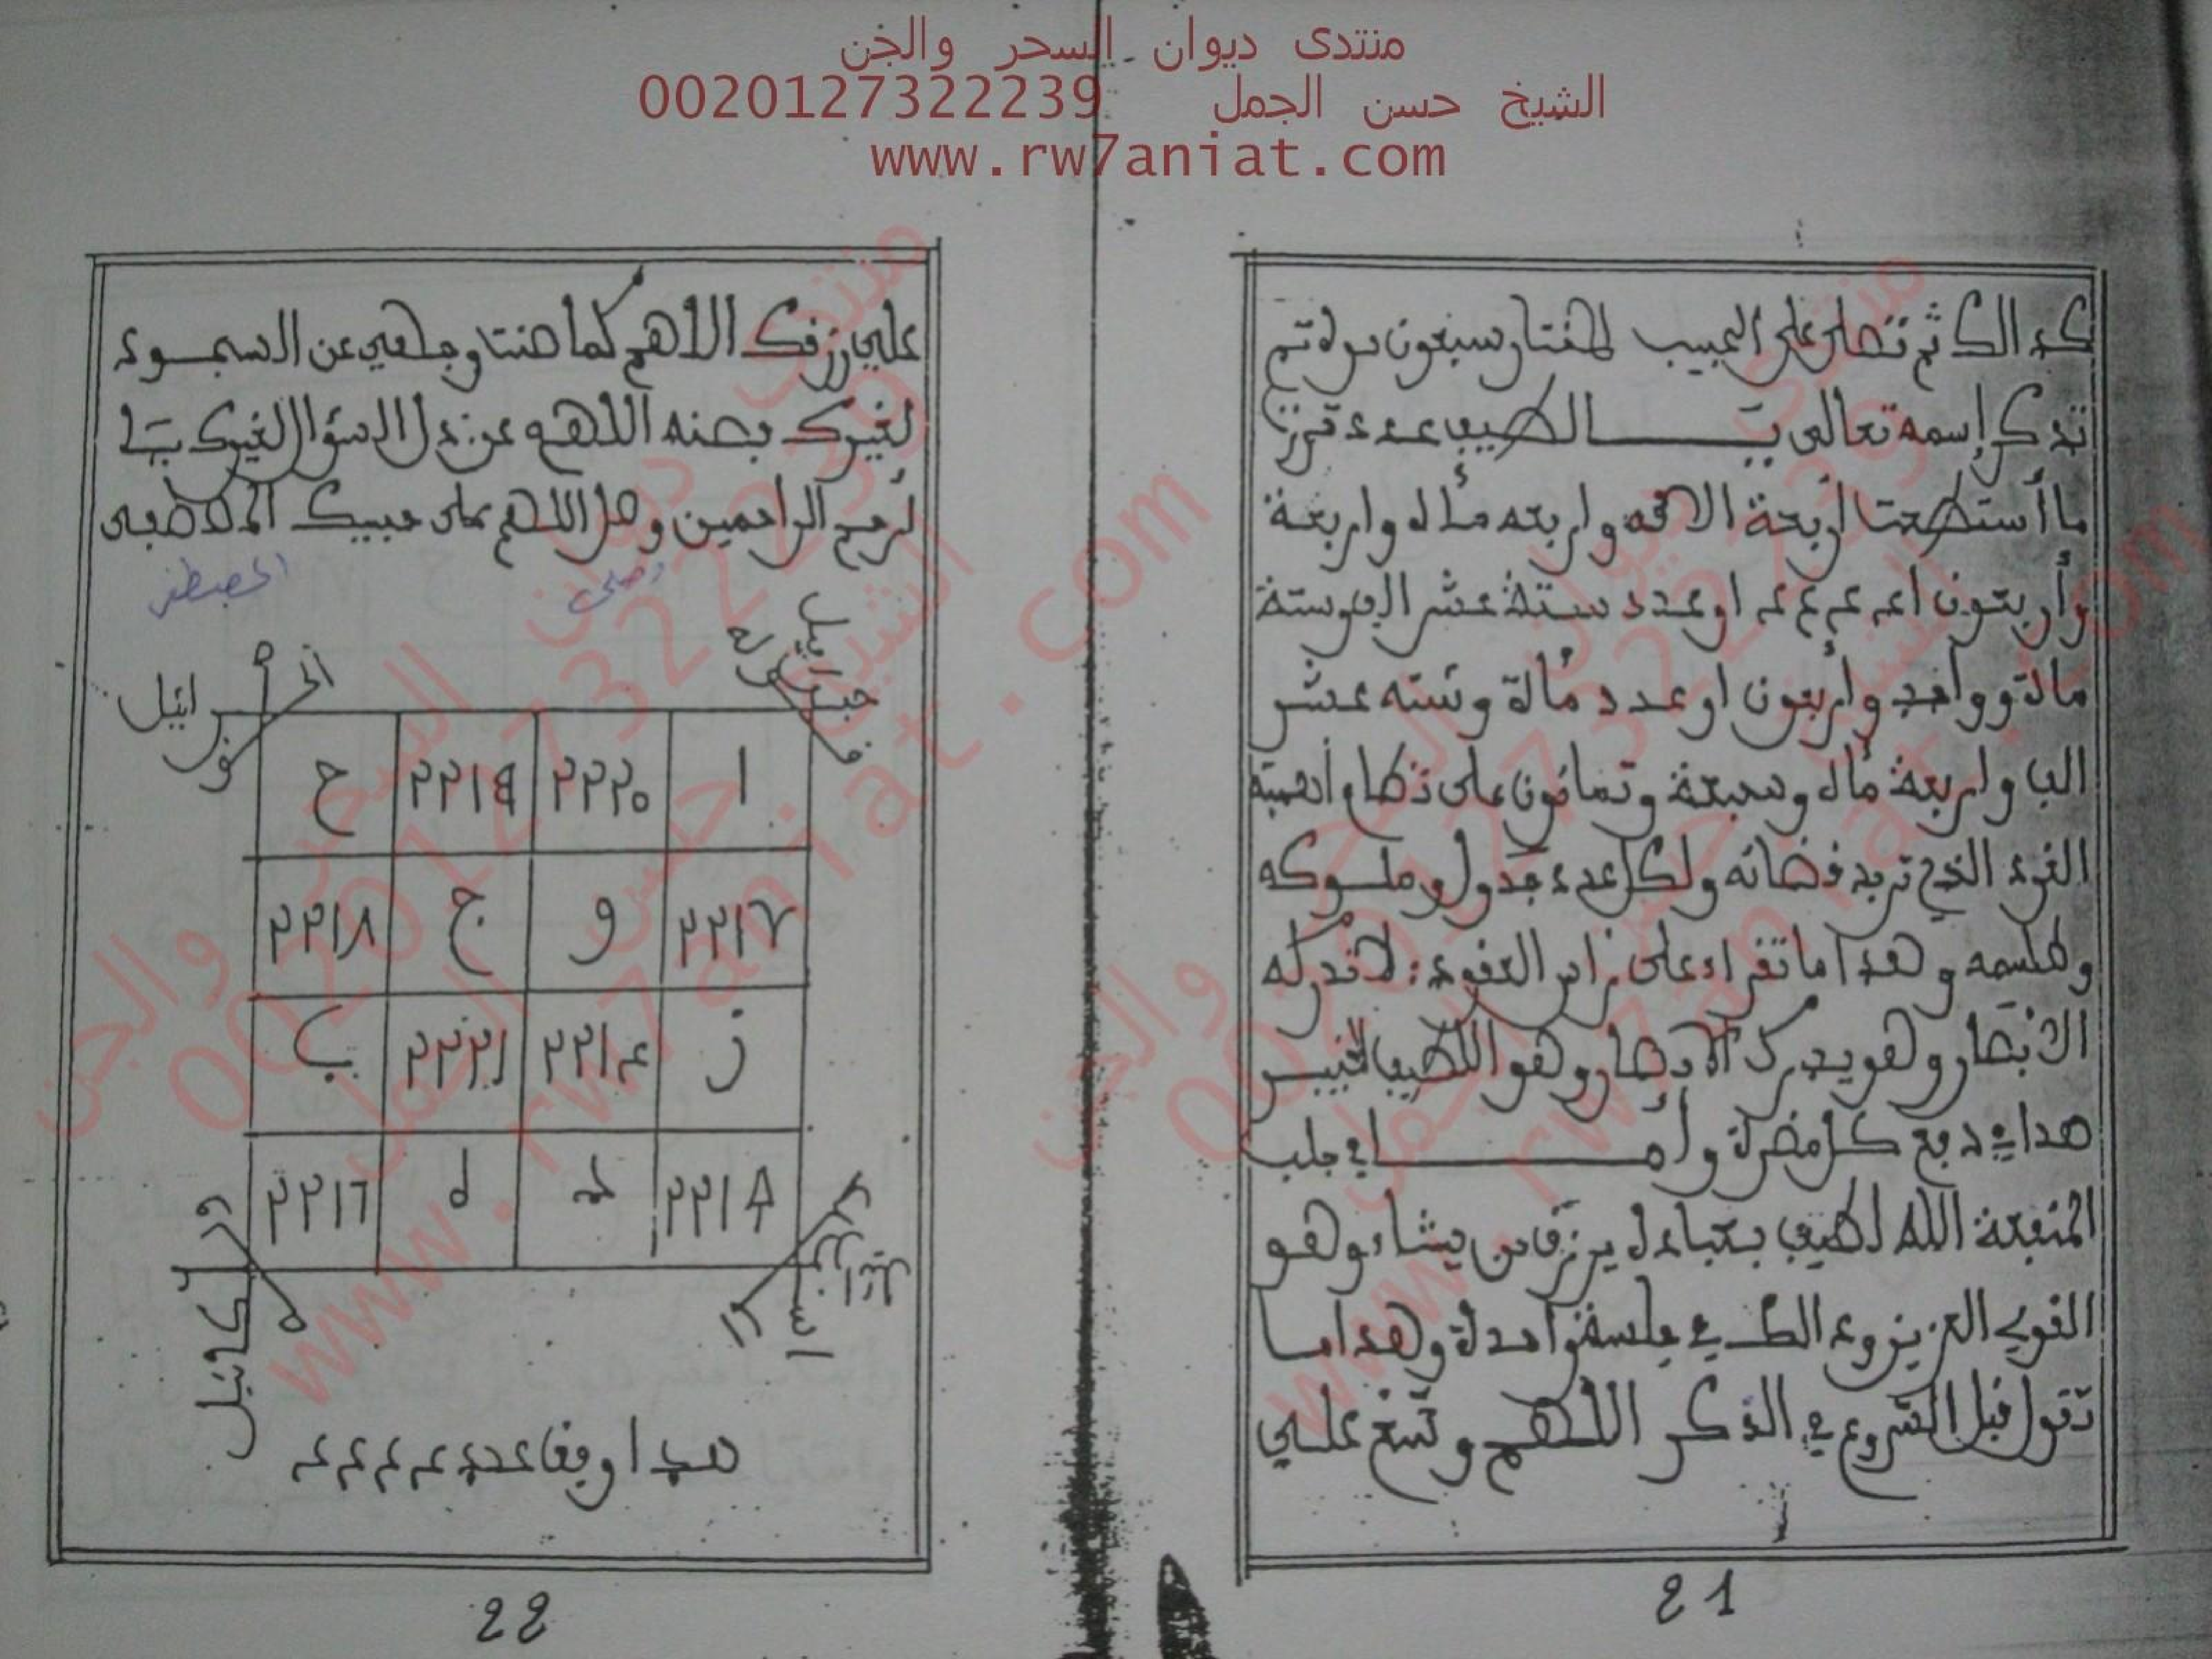 منتدى ديوان السحر والجن
الشيخ حسن الجمل 0020127322239
www.rw7aniat.com
كدالك ثم تصلى على الحبيب المختار سبعون مرة تم
تدكر إسمه تعالى يَا لطيف عدد
ما أستطعت أربعة الاف واربعه مأة واربعة
وأربعون اعـ ع ع ع او عدد ستة عشر الف وستة
مائة وواحد وأربعون او عدد مأة وسته عشر
الف واربعة مأة وسبعة وتمانون على أهمية
الغرد الذي تريد قضائه ولكل عدد جدول وملوكه
وطلسمه وهدا ما تقراء على راس العقود: لا تدركه
الأبصار وهو يدرك الأبصار وهو اللطيف الخبير
هدا في دفع كل مضرة وأمـــا في جلب
المنفعة الله لطيف بعباده يرزق من يشاء وهو
القوي العزيز في جلسة واحدة وهدا ما
تقول قبل الشروع في الذكر اللهم وسّع علي
21
علي رزقك اللاهم كما صنت وجهي عن السجود
لغيرك فصنه اللهم عن ذل السؤال لغيرك يا
أرحم الراحمين وصل اللهم على حبيبك المصطفى
وصلى المصطفى
جبرائيل
ا ٢٢٢٠ ٢٢١٩ ح
٢٢١٧ و ج ٢٢١٨
ز ٢٢١٤ ٢٢٢١ ب
٢٢١٦
هدا وفق عدد ع ع ع ع
22